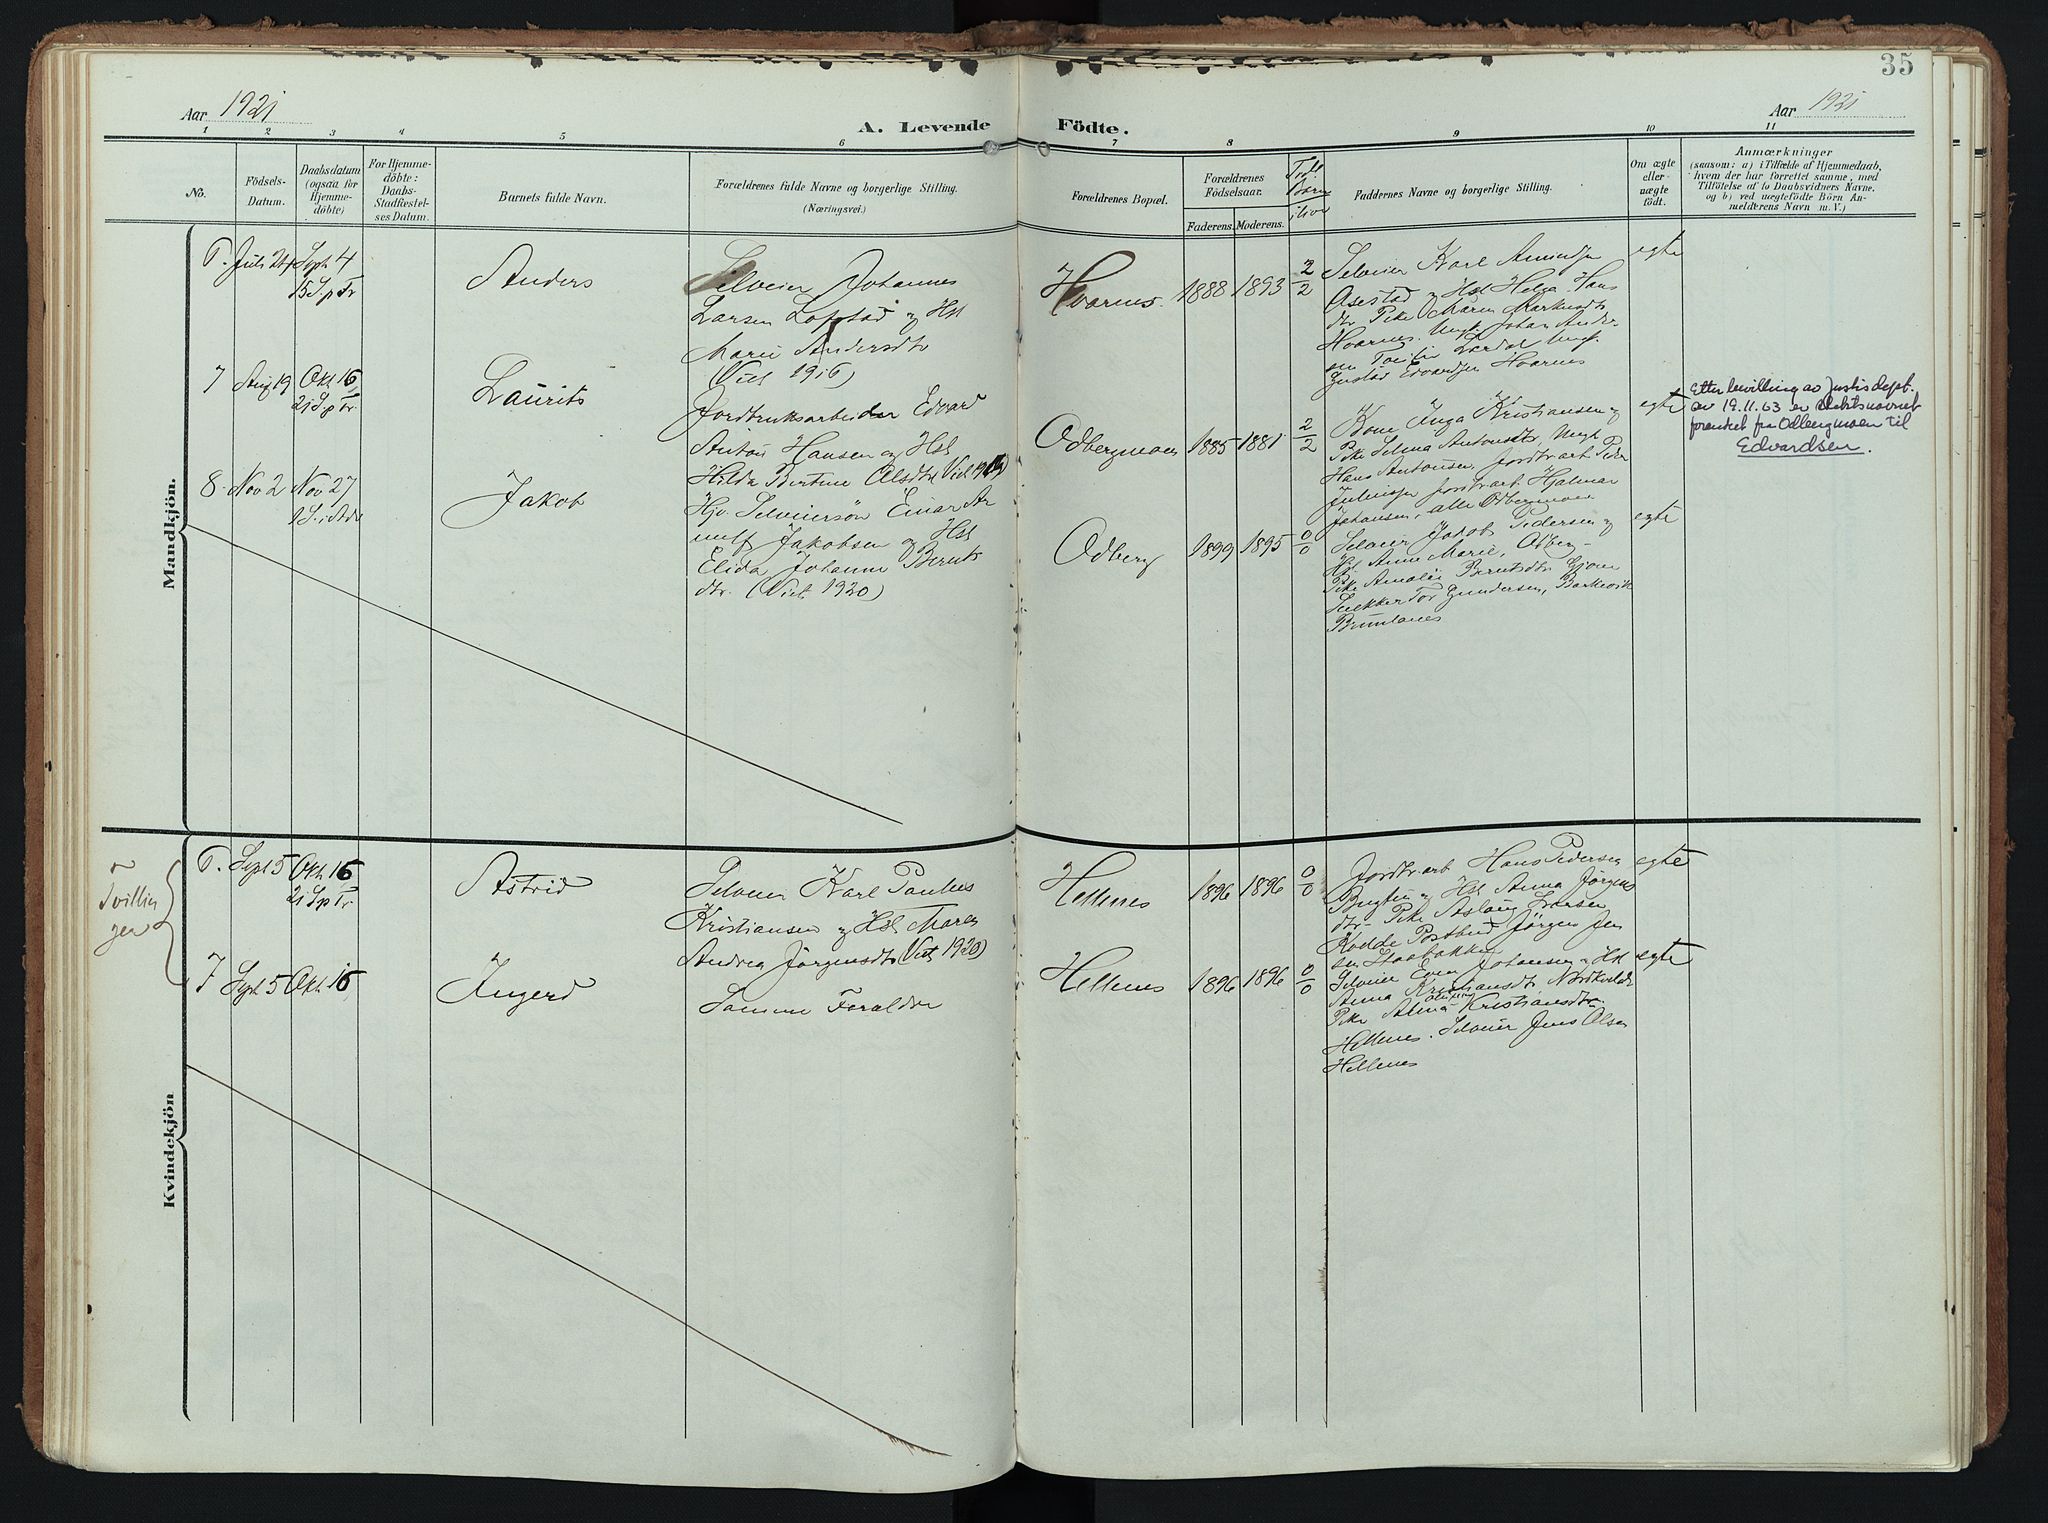 35
Aar 1921
Aar 1921
A. Levende Födte.
1 2 3 4 5 6 7 8 9 10 11
No.
Födsels-
Datum.
Daabsdatum
(ogsaa for
Hjemme-
döbte)
For Hjemme-
döbte:
Daabs-
Stadfæstel-
ses Datum.
Barnets fulde Navn.
Forældrenes fulde Navne og borgerlige Stilling.
(Næringsvei.)
Forældrenes Bopæl.
Forældrenes
Födselsaar.
Faderens. Moderens.
Faddernes Navne og borgerlige Stilling.
Om ægte
eller
uægte
födt.
Anmærkninger
(saasom: a) i Tilfælde af Hjemmedaab,
hvem der har forrettet samme, med
Tilföielse af to Daabsvidners Navne.
og b) ved uægtefödte Börn An-
melderens Navn m. V.)
Mandkjön.
6. Juli 24 Sept 4
15 S. p Tr
Anders
Selveier Johannes
Larsen og Hst
Marie Andersdtr
(Viet 1916)
Hvarnes 1888 1893 2/2
Selveier Karl
og Hst Helga Hans
dtr Pike Maren
Hvarnes. Ungk. Johan Ander
sen Lardal Ungk.
Gustav Edvardsen Hvarnes
egte
7 Aug 19 Okt 16
21 S p Tr.
Laurits
Jordbruksarbeider Edvard
Anton Hansen og Hst
Hilda Bertine Olsdtr
Odbergmoen 1885 1881 2/2
Kone Inga Kristiansen og
Pike Selma Antonsdtr, Ungk
Hans Antonsen, Jordbr arb Peder
Jordbr arb Hjalmar
Johansen, alle Odbergmoen
egte
Etter bevilling av Justisdept.
av 19.11.63 er slektsnavnet
forandret fra Odbergmoen til
Edvardsen.
8. Nov 2 Nov 27
1 S. i Adv
Jakob
Selveiersøn Einar Ar
nulf Jakobsen og Hst
Elida Johanne Bernts
dtr. (Viet 1920)
Odberg 1899 1895 0/0
Selveier Jakob Pedersen og
Hst Anne Marie, Odberg -
Pike Amalie Berntsdtr
Snekker Tor Gundersen,
Brunlanes
egte
Kvindekjön
Tvillin
ger
6. Sept 5 Okt 16
21 S p Tr
Astrid
Selveier Karl Paulus
Kristiansen og Hst Maren
Andrea Jørgensdtr (Viet 1920)
Hellenes 1896 1896 0/0
Jordbr. arb Hans Pedersen
og Hst Anna Jørgens
dtr. Pike Aslaug Larsen
Kodde Postbud Jørgen Jen
sen
egte
7 Sept 5 Okt 16
Ingerd
Samme Foraldre
Hellenes 1896 1896 0/0
Selveier Even Johansen og Hst
Anna Kristiansdtr
Pike Alma Kristiansdtr.
Hellenes. Selveier Jens Olsen
Hellenes
egte